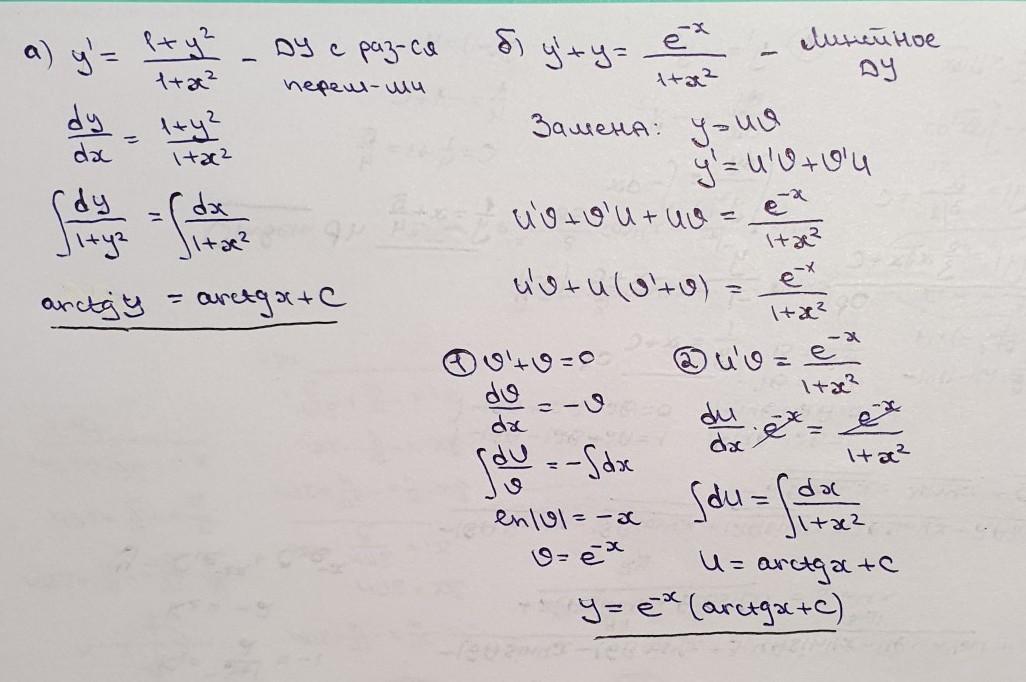 а) y' = (1+y²)/(1+x²) – ДУ с раз-ся перем-ми
dy/dx = (1+y²)/(1+x²)
∫ dy/(1+y²) = ∫ dx/(1+x²)
arctgy = arctgx + C
б) y' + y = e^(-x)/(1+x²) – Линейное ДУ
Замена: y = uϑ
y' = u'ϑ + ϑ'u
u'ϑ + ϑ'u + uϑ = e^(-x)/(1+x²)
u'ϑ + u(ϑ'+ϑ) = e^(-x)/(1+x²)
① ϑ' + ϑ = 0
dϑ/dx = -ϑ
∫ dϑ/ϑ = -∫dx
ln|ϑ| = -x
ϑ = e^(-x)
② u'ϑ = e^(-x)/(1+x²)
du/dx · e^(-x) = e^(-x)/(1+x²)
∫du = ∫ dx/(1+x²)
u = arctgx + C
y = e^(-x) (arctgx + C)